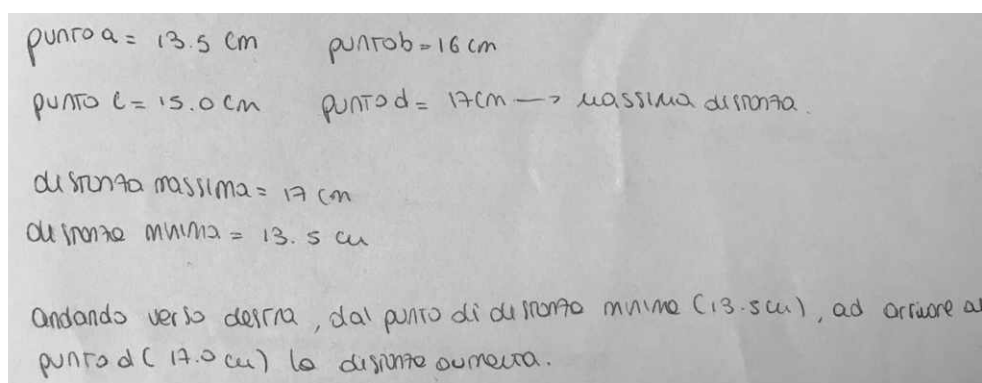 punto a = 13.5 cm punto b = 16 cm
punto c = 15.0 cm punto d = 17cm —> massima distanza.
distanza massima = 17 cm
distanza minima = 13.5 cm
andando verso destra, dal punto di distanza minima (13.5cm), ad arrivare al
punto d (17.0 cm) la distanza aumenta.